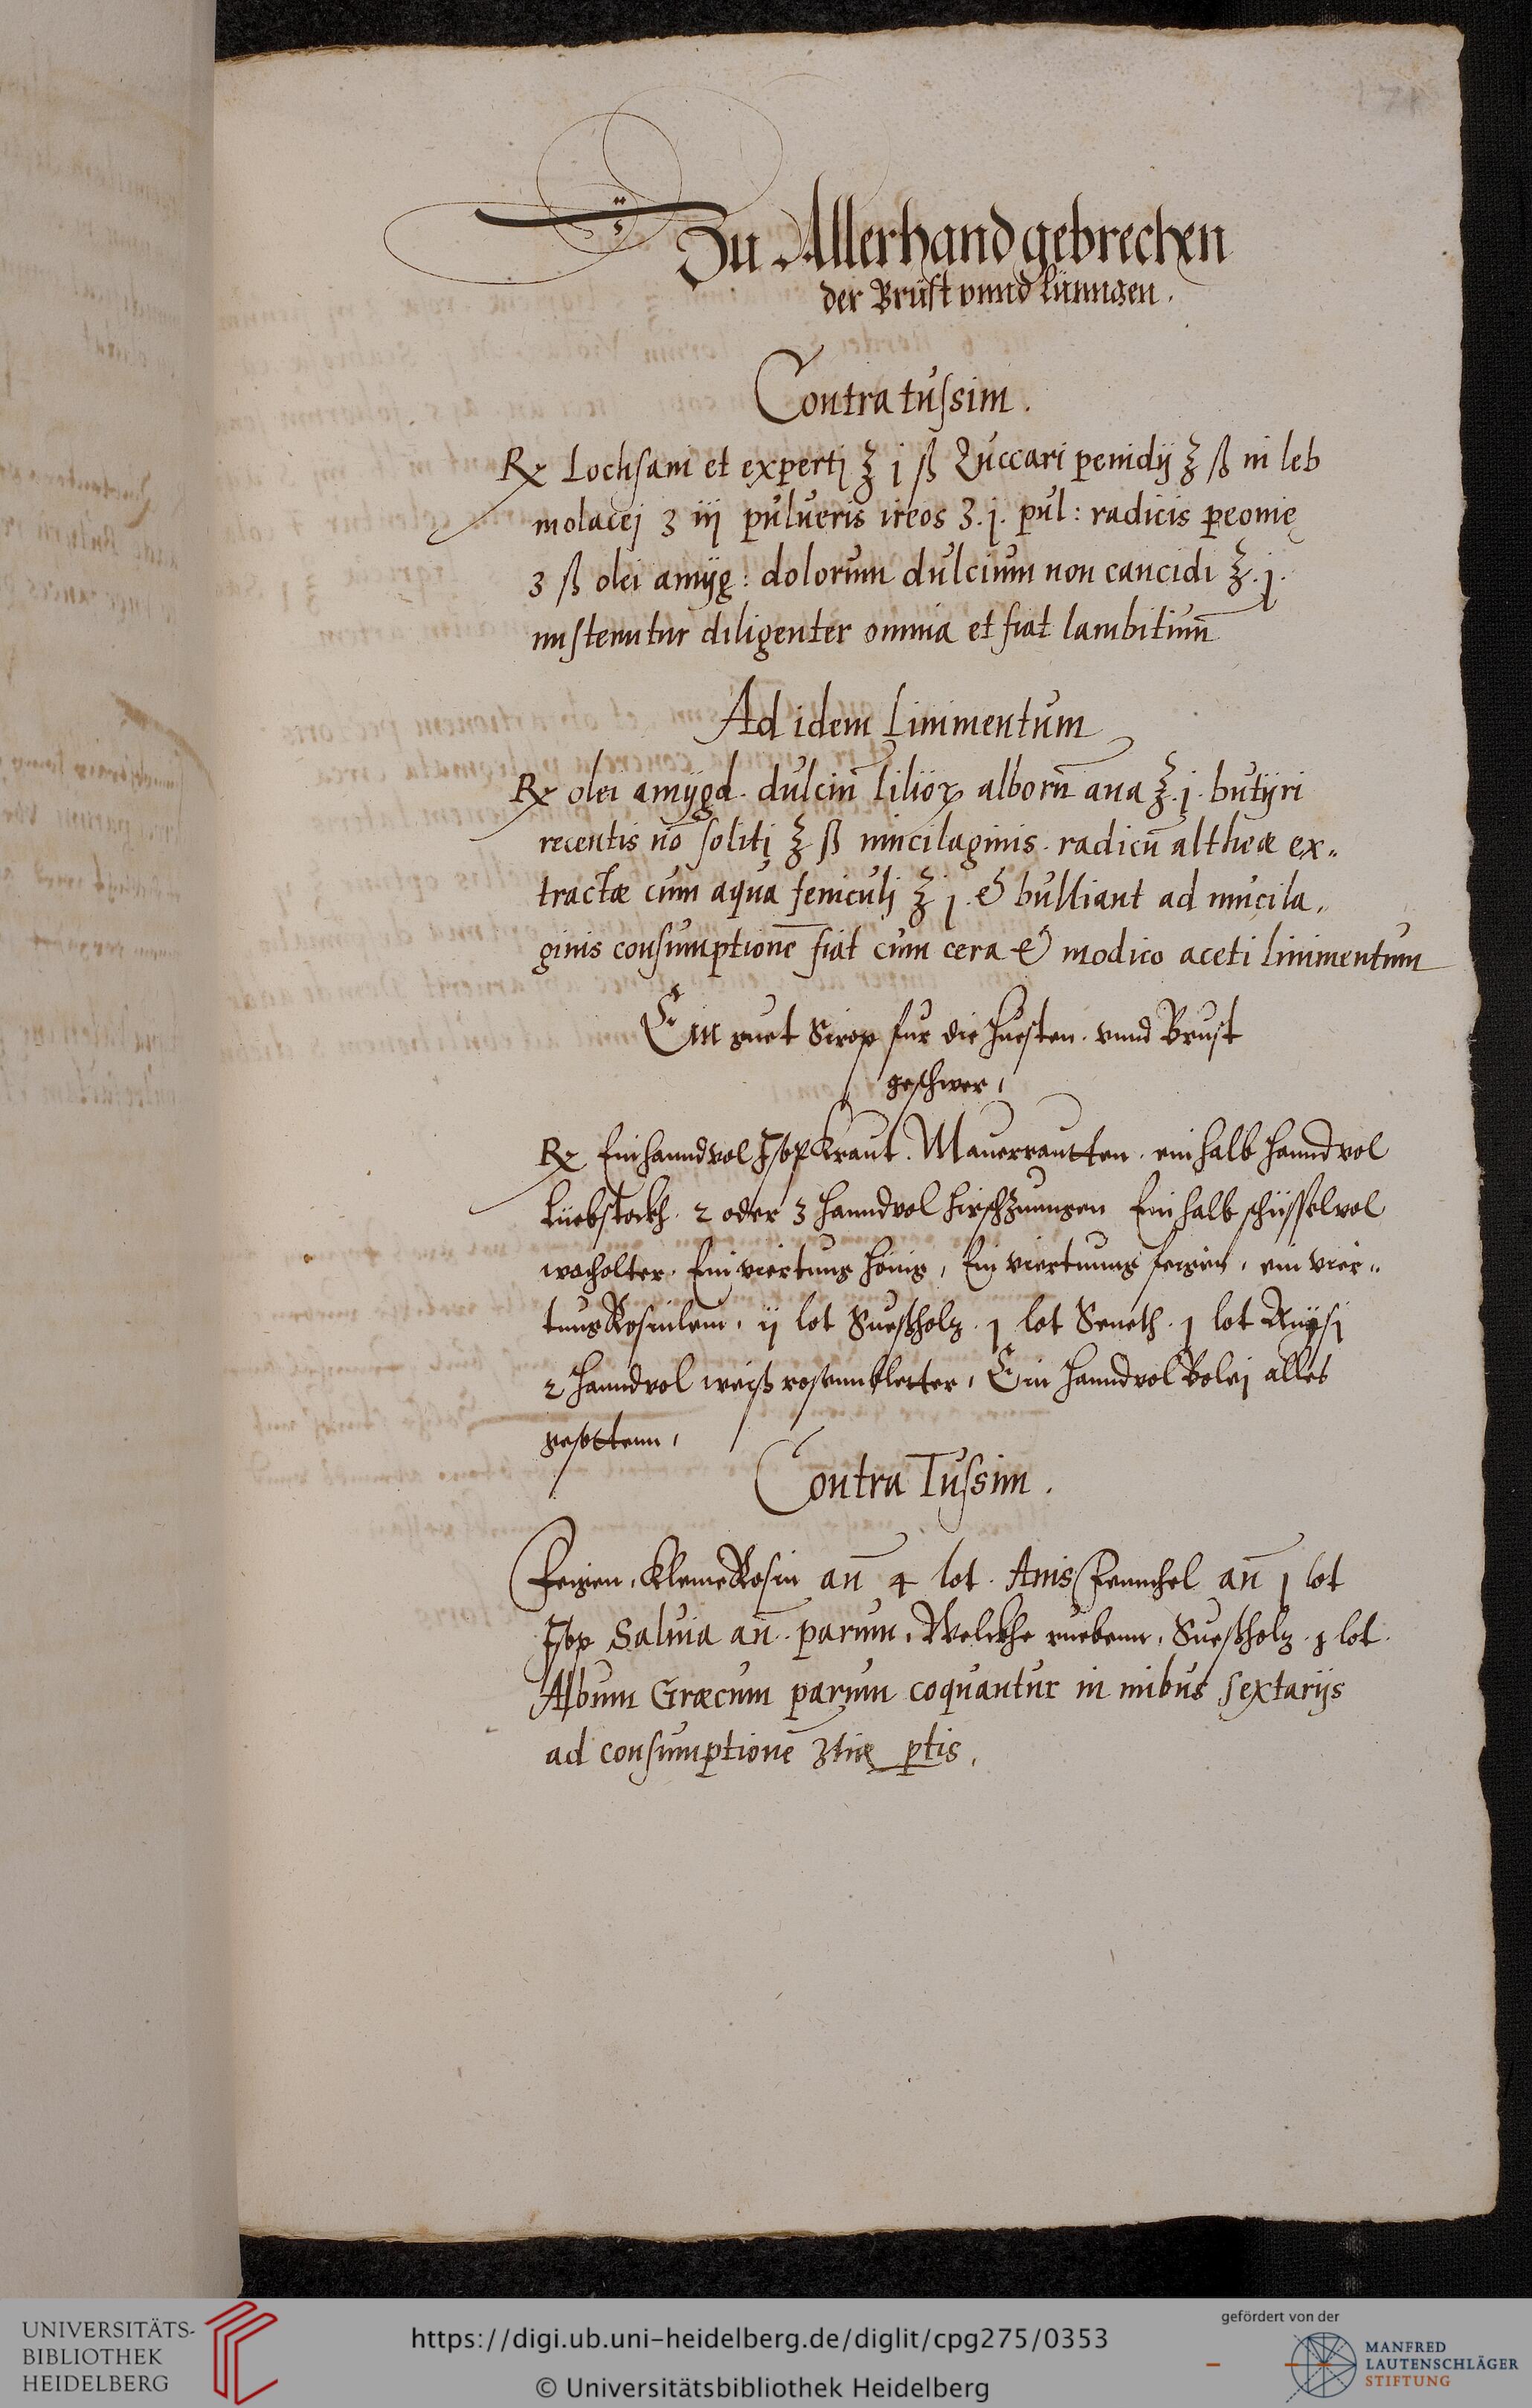 171
Zu Allerhand gebrechen
der Brüst vnnd lünngen.
Contra tussim.
℞ Lochsani et expertj ℥ j ß Zuccari penidij ℥ ß in leb
molacej ʒ iij pulueris ireos ʒ. j. pul: radicis peonię
ʒ ß olei amijg: dolorum dulcium non cancidi ℥. j.
mistenutur diligenter omnia et fiat lambitiuū
Ad idem Linimentum
℞ olei amijgd. dulciū liliorꝝ alborū ana ℥. j. butijri
recentis nō soliti ℥ ß mucilaginis. radicū altheæ ex„
tractæ cum aqua feniculj ℥ j. & bulliant ad mucila„
ginis consumptionē fiat cum cera & modico aceti linimentum
Ein guet Sirop fur die Huesten. vnnd Brust
geschwer,
℞ Ein hanndvol Jsop Kraut. Maurrautten. ein halb hanndvol
Lüebstockh. 2 oder 3 hanndvol hirschzungen Ein halb schüsselvol
wecholter. Ein viertung honig, Ein viertnung feigen, ein vier„
tung Rosinlein, ij lot Suessholtz. j lot Seneth. j lot Anijsj
2 hanndvol weiß rosennbletter, Ein hanndvol Bolej alles
gesottenn,
Contra Tussim.
Feigen, kleine Rosin añ 4 lot. Anis Fennchel añ j lot
Jsop Saluia añ. parum, Welckhe ruebenn, Suessholtz. j lot.
Album Græcum parum coquantur in mibus sextarijs
ad consumptionē 3tiæ ptis.
UNIVERSITÄTS-
BIBLIOTHEK
HEIDELBERG
https://digi.ub.uni-heidelberg.de/diglit/cpg275/0353
© Universitätsbibliothek Heidelberg
gefördert von der
MANFRED
LAUTENSCHLÄGER
STIFTUNG